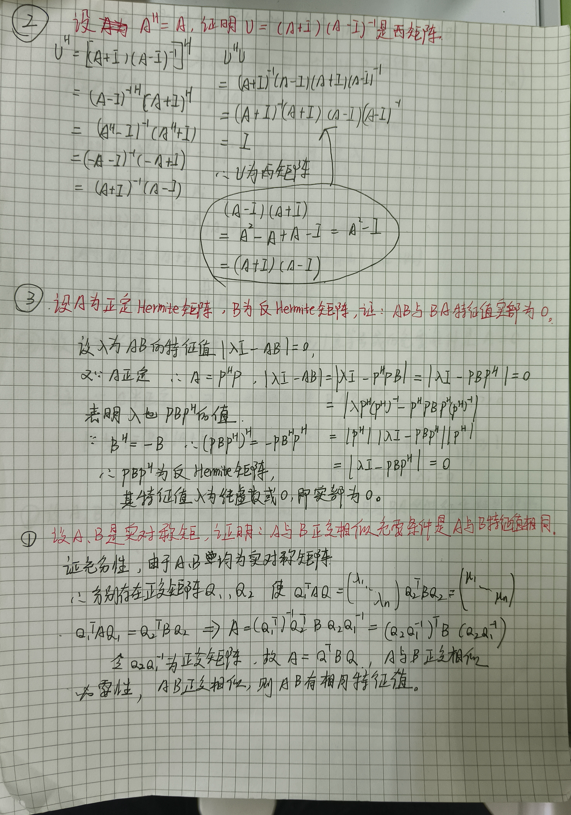 ② 设 A^H = A, 证明 U = (A+I)(A-I)^{-1} 是酉矩阵.
U^H = [(A+I)(A-I)^{-1}]^H
= (A-I)^{-1H} (A+I)^H
= (A^H-I)^{-1} (A^H+I)
= (-A-I)^{-1} (-A+I)
= (A+I)^{-1} (A-I)
U^H U
= (A+I)^{-1} (A-I)(A+I)(A-I)^{-1}
= (A+I)^{-1} (A+I) (A-I)(A-I)^{-1}
= I
∴ U为酉矩阵
(A-I)(A+I)
= A²-A+A-I = A²-I
= (A+I)(A-I)
③ 设A为正定Hermite矩阵, B为反Hermite矩阵, 证: AB与BA特征值实部为0.
设λ为AB的特征值 |λI-AB|=0,
又∵ A正定 ∴ A=P^H P, |λI-AB|=|λI-P^H PB|=|λI-PBP^H|=0
= |λP^H(P^H)^{-1} - P^H PBP^H(P^H)^{-1}|
表明λ也PBP^H的值
∵ B^H=-B ∴ (PBP^H)^H=-PB^H P^H = |P^H| |λI-PBP^H| |P^H|
∴ PBP^H为反Hermite矩阵, = |λI-PBP^H|=0
其特征值λ为纯虚数或0, 即实部为0。
① 设A、B是实对称矩阵, 证明: A与B正交相似充要条件是A与B特征值相同.
证充分性, 由于A、B均为实对称矩阵
∴ 分别存在正交矩阵Q₁, Q₂ 使 Q₁^T AQ=(λ₁ ⋱ λn) Q₂^T BQ₂=(μ₁ ⋱ μn)
Q₁^T AQ₁ = Q₂^T BQ₂ ⇒ A=(Q₁^T)^{-1} Q₂^T B Q₂Q₁^{-1} = (Q₂Q₁^{-1})^T B (Q₂Q₁^{-1})
令Q₂Q₁^{-1}为正交矩阵. 故 A=Q^T BQ, A与B正交相似
必要性, AB正交相似, 则AB有相同特征值。